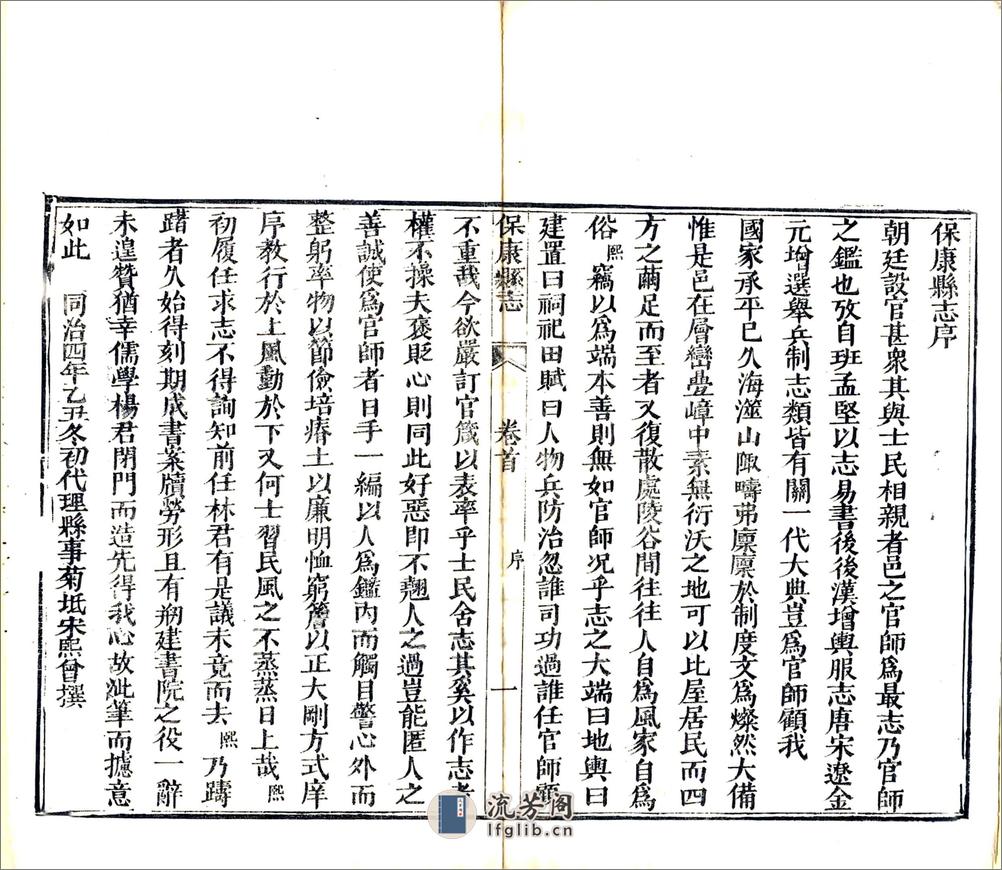 保康縣志序
朝廷設官甚衆其與士民相親者邑之官師爲最志乃官師
之鑑也攷自班孟堅以志易書後後漢增輿服志唐宋遼金
元增選舉兵制志類皆有關一代大典豈爲官師顧我
國家承平已久海澨山陬疇弗廩廩於制度文爲燦然大備
惟是邑在層巒疊嶂中素無衍沃之地可以比屋居民而四
方之繭足而至者又復散處陵谷間往往人自爲風家自爲
俗熙竊以爲端本善則無如官師况乎志之大端曰地輿曰
建置曰祠祀田賦曰人物兵防治忽誰司功過誰任官師顧
保康縣志 卷首 序 一
不重哉今欲嚴訂官箴以表率乎士民舍志其奚以作志者
權不操夫褒貶心則同此好惡即不翹人之過豈能匿人之
善誠使爲官師者日手一編以人爲鑑內而觸目警心外而
整躬率物以節儉培瘠土以廉明恤窮簷以正大剛方式庠
序教行於上風動於下又何士習民風之不蒸蒸日上哉熙
初履任求志不得詢知前任林君有是議未竟而去熙乃躊
躇者久始得刻期成書案牘勞形且有剏建書院之役一辭
未遑贊猶幸儒學楊君閉門而造先得我心故泚筆而攄意
如此 同治四年乙丑冬初代理縣事菊坻宋熙曾撰
流芳阁
lfglib.cn